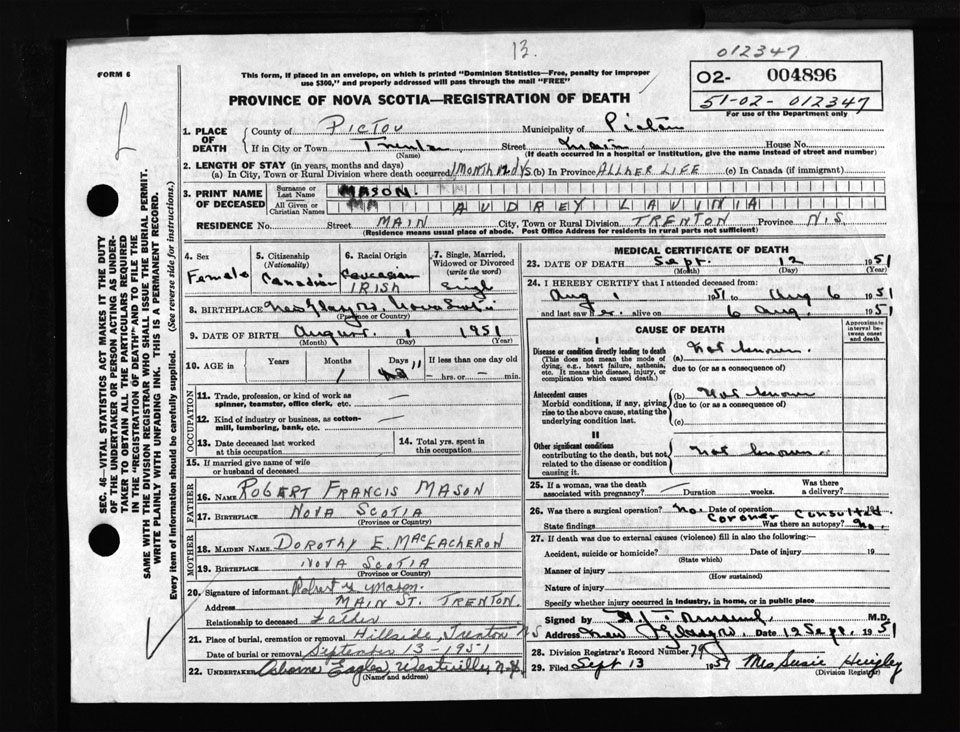 13.
012347
FORM 6
This form, if placed in an envelope, on which is printed "Dominion Statistics—Free, penalty for improper
use $300," and properly addressed will pass through the mail "FREE"
02- 004896
51-02-012347
For use of the Department only
PROVINCE OF NOVA SCOTIA—REGISTRATION OF DEATH
1. PLACE OF DEATH
County of PICTOU Municipality of Pictou
If in City or Town Trenton Street Main House No.
(Name) (If death occurred in a hospital or institution, give the name instead of street and number)
2. LENGTH OF STAY (in years, months and days)
(a) In City, Town or Rural Division where death occurred 1 MONTH 12 dys. (b) In Province ALL HER LIFE (c) In Canada (if immigrant)
3. PRINT NAME OF DECEASED
Surname or Last Name MASON.
All Given or Christian Names AUDREY LAVINIA
RESIDENCE No. Street MAIN City, Town or Rural Division TRENTON Province N.S.
(Residence means usual place of abode. Post Office Address for residents in rural parts not sufficient)
4. Sex Female
5. Citizenship (Nationality) Canadian
6. Racial Origin Caucasian IRISH
7. Single, Married, Widowed or Divorced (write the word) Single
8. BIRTHPLACE New Glasgow, Nova Scotia
(Province or Country)
9. DATE OF BIRTH August 1 1951
(Month) (Day) (Year)
10. AGE in Years Months Days If less than one day old
1 11 — hrs. or — min.
OCCUPATION
11. Trade, profession, or kind of work as spinner, teamster, office clerk, etc. —
12. Kind of industry or business, as cotton-mill, lumbering, bank, etc. —
13. Date deceased last worked at this occupation
14. Total yrs. spent in this occupation
15. If married give name of wife or husband of deceased
FATHER
16. NAME ROBERT FRANCIS MASON
17. BIRTHPLACE NOVA SCOTIA
(Province or Country)
MOTHER
18. MAIDEN NAME DOROTHY E. MACEACHERON
19. BIRTHPLACE NOVA SCOTIA
(Province or Country)
20. Signature of informant Robert Mason.
Address MAIN ST. TRENTON.
Relationship to deceased Father
21. Place of burial, cremation or removal Hillside, Trenton NS
Date of burial or removal September 13-1951
22. UNDERTAKER Osborne Eagles, Westville, N.S.
(Name and address)
MEDICAL CERTIFICATE OF DEATH
23. DATE OF DEATH Sept. 12 1951
(Month) (Day) (Year)
24. I HEREBY CERTIFY that I attended deceased from:
Aug 1 1951 to Aug 6 1951
and last saw her alive on 6 Aug. 1951
CAUSE OF DEATH
Approximate interval between onset and death
I
Disease or condition directly leading to death (a) Not known.
(This does not mean the mode of dying, e.g., heart failure, asthenia, etc. It means the disease, injury, or complication which caused death.)
due to (or as a consequence of)
Antecedent causes (b) Not known
Morbid conditions, if any, giving rise to the above cause, stating the underlying condition last.
due to (or as a consequence of)
(c)
II
Other significant conditions contributing to the death, but not related to the disease or condition causing it. Not known
25. If a woman, was the death associated with pregnancy? Duration weeks. Was there a delivery?
26. Was there a surgical operation? No. Date of operation
Coroner Consulted
State findings Was there an autopsy? No.
27. If death was due to external causes (violence) fill in also the following:—
Accident, suicide or homicide? Date of injury 19
(State which)
Manner of injury
(How sustained)
Nature of injury
Specify whether injury occurred in industry, in home, or in public place
Signed M.D.
Address New Glasgow, Date 12 Sept. 1951
28. Division Registrar's Record Number 79
29. Filed Sept 13 1951 Mrs Susie
(Division Registrar)
SEC. 46—VITAL STATISTICS ACT MAKES IT THE DUTY
OF THE UNDERTAKER OR PERSON ACTING AS UNDER-
TAKER TO OBTAIN ALL THE PARTICULARS REQUIRED
IN THE "REGISTRATION OF DEATH" AND TO FILE THE
SAME WITH THE DIVISION REGISTRAR WHO SHALL ISSUE THE BURIAL PERMIT.
WRITE PLAINLY WITH UNFADING INK. THIS IS A PERMANENT RECORD.
Every item of information should be carefully supplied. (See reverse side for instructions.)